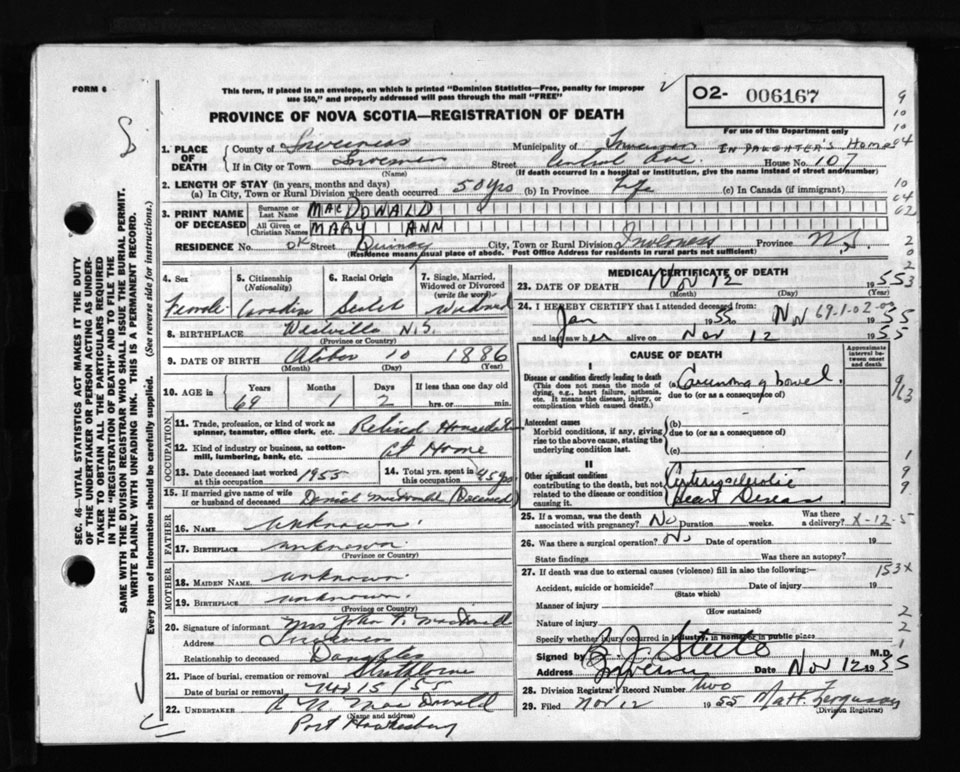 FORM 6
This form, if placed in an envelope, on which is printed "Dominion Statistics—Free, penalty for improper
use $50," and properly addressed will pass through the mail "FREE"
PROVINCE OF NOVA SCOTIA—REGISTRATION OF DEATH
O2- 006167
For use of the Department only
1. PLACE OF DEATH
County of Inverness Municipality of Inverness IN DAUGHTER'S Home
If in City or Town Inverness Street Central Ave. House No. 107
(Name) (If death occurred in a hospital or institution, give name instead of street and number)
2. LENGTH OF STAY (in years, months and days)
(a) In City, Town or Rural Division where death occurred 50 yrs (b) in Province Life (c) in Canada (if immigrant)
3. PRINT NAME OF DECEASED
Surname or Last Name MACDONALD
All Given or Christian Names MARY ANN
RESIDENCE No. Street Quincy City, Town or Rural Division Inverness Province N.S.
(Residence means usual place of abode. Post Office Address for residents in rural parts not sufficient)
4. Sex Female
5. Citizenship (Nationality) Canadian
6. Racial Origin
7. Single, Married, Widowed or Divorced (write the word) Widowed
8. BIRTHPLACE Westville N.S.
(Province or Country)
9. DATE OF BIRTH October 10 1886
(Month) (Day) (Year)
10. AGE in Years Months Days If less than one day old
69 1 2 hrs. or min.
OCCUPATION
11. Trade, profession, or kind of work as spinner, teamster, office clerk, etc. Retired
12. Kind of industry or business, as cotton-mill, lumbering, bank, etc. At Home
13. Date deceased last worked at this occupation 1955
14. Total yrs. spent in this occupation 45 yrs
15. If married give name of wife or husband of deceased MacDonald (Deceased)
FATHER
16. NAME unknown
17. BIRTHPLACE unknown
(Province or Country)
MOTHER
18. MAIDEN NAME. unknown
19. BIRTHPLACE unknown
(Province or Country)
20. Signature of informant Mrs John F. MacDonald
Address Inverness
Relationship to deceased Daughter
21. Place of burial, cremation or removal Strathlorne
Date of burial or removal Nov 15 / 55
22. UNDERTAKER A N MacDonald
(Name and address)
Port Hawkesbury
MEDICAL CERTIFICATE OF DEATH
23. DATE OF DEATH Nov 12 1955
(Month) (Day) (Year)
24. I HEREBY CERTIFY that I attended deceased from:
Jan 1955 Nov 1955
and last saw her alive on Nov 12 1955
CAUSE OF DEATH
Approximate interval between onset and death
I
Disease or condition directly leading to death (a) Carcinoma of bowel.
(This does not mean the mode of dying, e.g., heart failure, asthenia, etc. It means the disease, injury, or complication which caused death.)
due to (or as a consequence of)
Antecedent causes (b)
Morbid conditions, if any, giving rise to the above cause, stating the underlying condition last.
due to (or as a consequence of)
(c)
II
Other significant conditions
contributing to the death, but not related to the disease or condition causing it.
Arteriosclerotic
Heart Disease
25. If a woman, was the death associated with pregnancy? No Duration weeks. Was there a delivery? X-12-5
26. Was there a surgical operation? No Date of operation 19
State findings Was there an autopsy?
27. If death was due to external causes (violence) fill in also the following:— 153X
Accident, suicide or homicide? Date of injury 19
(State which)
Manner of injury
(How sustained)
Nature of injury
Specify whether injury occurred in industry, in home, or in public place
Signed by M.D.
Address Inverness Date Nov 12 1955
28. Division Registrar's Record Number two
29. Filed Nov 12 1955 Matt. Ferguson
(Division Registrar)
SEC. 46—VITAL STATISTICS ACT MAKES IT THE DUTY
OF THE UNDERTAKER OR PERSON ACTING AS UNDER-
TAKER TO OBTAIN ALL THE PARTICULARS REQUIRED
IN THE "REGISTRATION OF DEATH" AND TO FILE THE
SAME WITH THE DIVISION REGISTRAR WHO SHALL ISSUE THE BURIAL PERMIT.
WRITE PLAINLY WITH UNFADING INK. THIS IS A PERMANENT RECORD.
Every item of information should be carefully supplied. (See reverse side for instructions.)